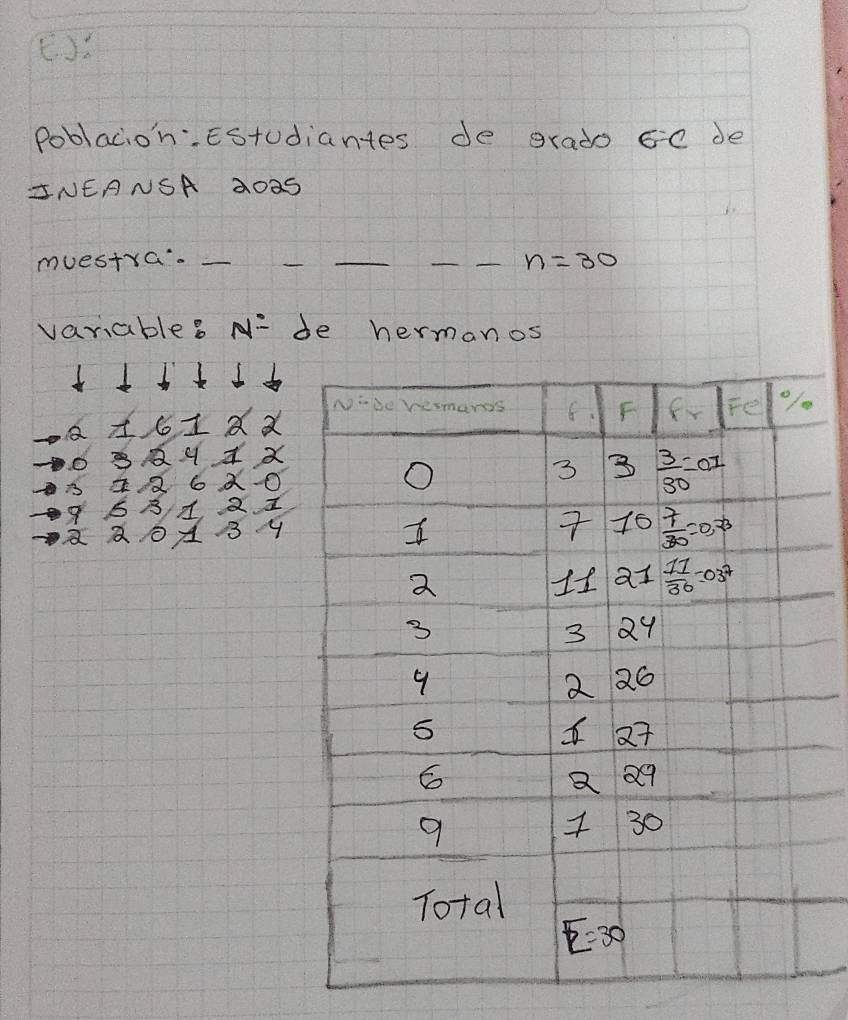 EJ:
Población: Estudiantes de grado 6-C de
INEANSA 2025
muestra: _ _ _ _ _ n=30
variable: Nº de hermanos
↓ ↓ ↓ ↓ ↓ ↓
→2 1 6 1 2 2
→0 3 2 4 1 2
→3 1 2 6 2 0
→9 5 3 1 2 1
→2 2 0 1 3 4
Nº de hermanos f. F fr Fe %
0 3 3 3/30=01
1 7 10 7/30=0,23
2 11 21 11/30=037
3 3 24
4 2 26
5 1 27
6 2 29
9 1 30
Total E=30